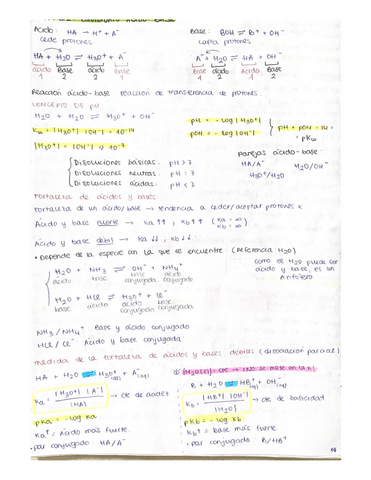 Ácido: HA → H⁺ + A⁻
cede protones
Base: BOH ⇌ B⁺ + OH⁻
capta protones
HA + H₂O ⇌ H₃O⁺ + A⁻
ácido 1 Base 2 ácido 2 Base 1
A⁻ + H₂O ⇌ HA + OH⁻
Base 1 ácido 2 Ácido 1 Base 2
Reacción ácido-base reacción de transferencia de protones.
CONCEPTO DE pH
H₂O + H₂O ⇌ H₃O⁺ + OH⁻
Kw = |H₃O⁺| |OH⁻| = 10⁻¹⁴
|H₃O⁺| = 10⁻⁷
pH = -log |H₃O⁺|
pOH = -log |OH⁻|
pH + pOH = 14 = pKw
parejas ácido-base:
HA/A⁻ H₂O/OH⁻
H₃O⁺/H₂O
Disoluciones básicas: pH > 7
Disoluciones neutras: pH = 7
Disoluciones ácidas: pH < 7
Fortaleza de ácidos y bases
Fortaleza de un ácido/base → tendencia a ceder/aceptar protones
Ácido y base fuerte → Ka↑↑, Kb↑↑ (Ka = ∞ Kb = ∞)
Ácido y base débil → Ka↓↓, Kb↓↓
• Depende de la especie con la que se encuentre (Referencia H₂O)
H₂O + NH₃ ⇌ OH⁻ + NH₄⁺
ácido base base conjugada ácido conjugado
como el H₂O puede ser ácido y base, es un Anfótero
H₂O + HCl ⇌ H₃O⁺ + Cl⁻
base ácido ácido conjugado base conjugada
NH₃/NH₄⁺ Base y ácido conjugado
HCl/Cl⁻ Ácido y base conjugada
medida de la fortaleza de ácidos y bases débiles (disociación parcial)
HA + H₂O ⇌ H₃O⁺(aq) + A⁻(aq)
Ka = |H₃O⁺| |A⁻| / |HA| → cte de acidez
pKa = -log Ka
Ka↑ = Ácido más fuerte.
• par conjugado HA/A⁻
B + H₂O ⇌ HB⁺(aq) + OH⁻(aq)
Kb = |HB⁺| |OH⁻| / |H₂O| → cte de basicidad
pKb = -log Kb
Kb↑ = Base más fuerte.
• par conjugado: B/HB⁺